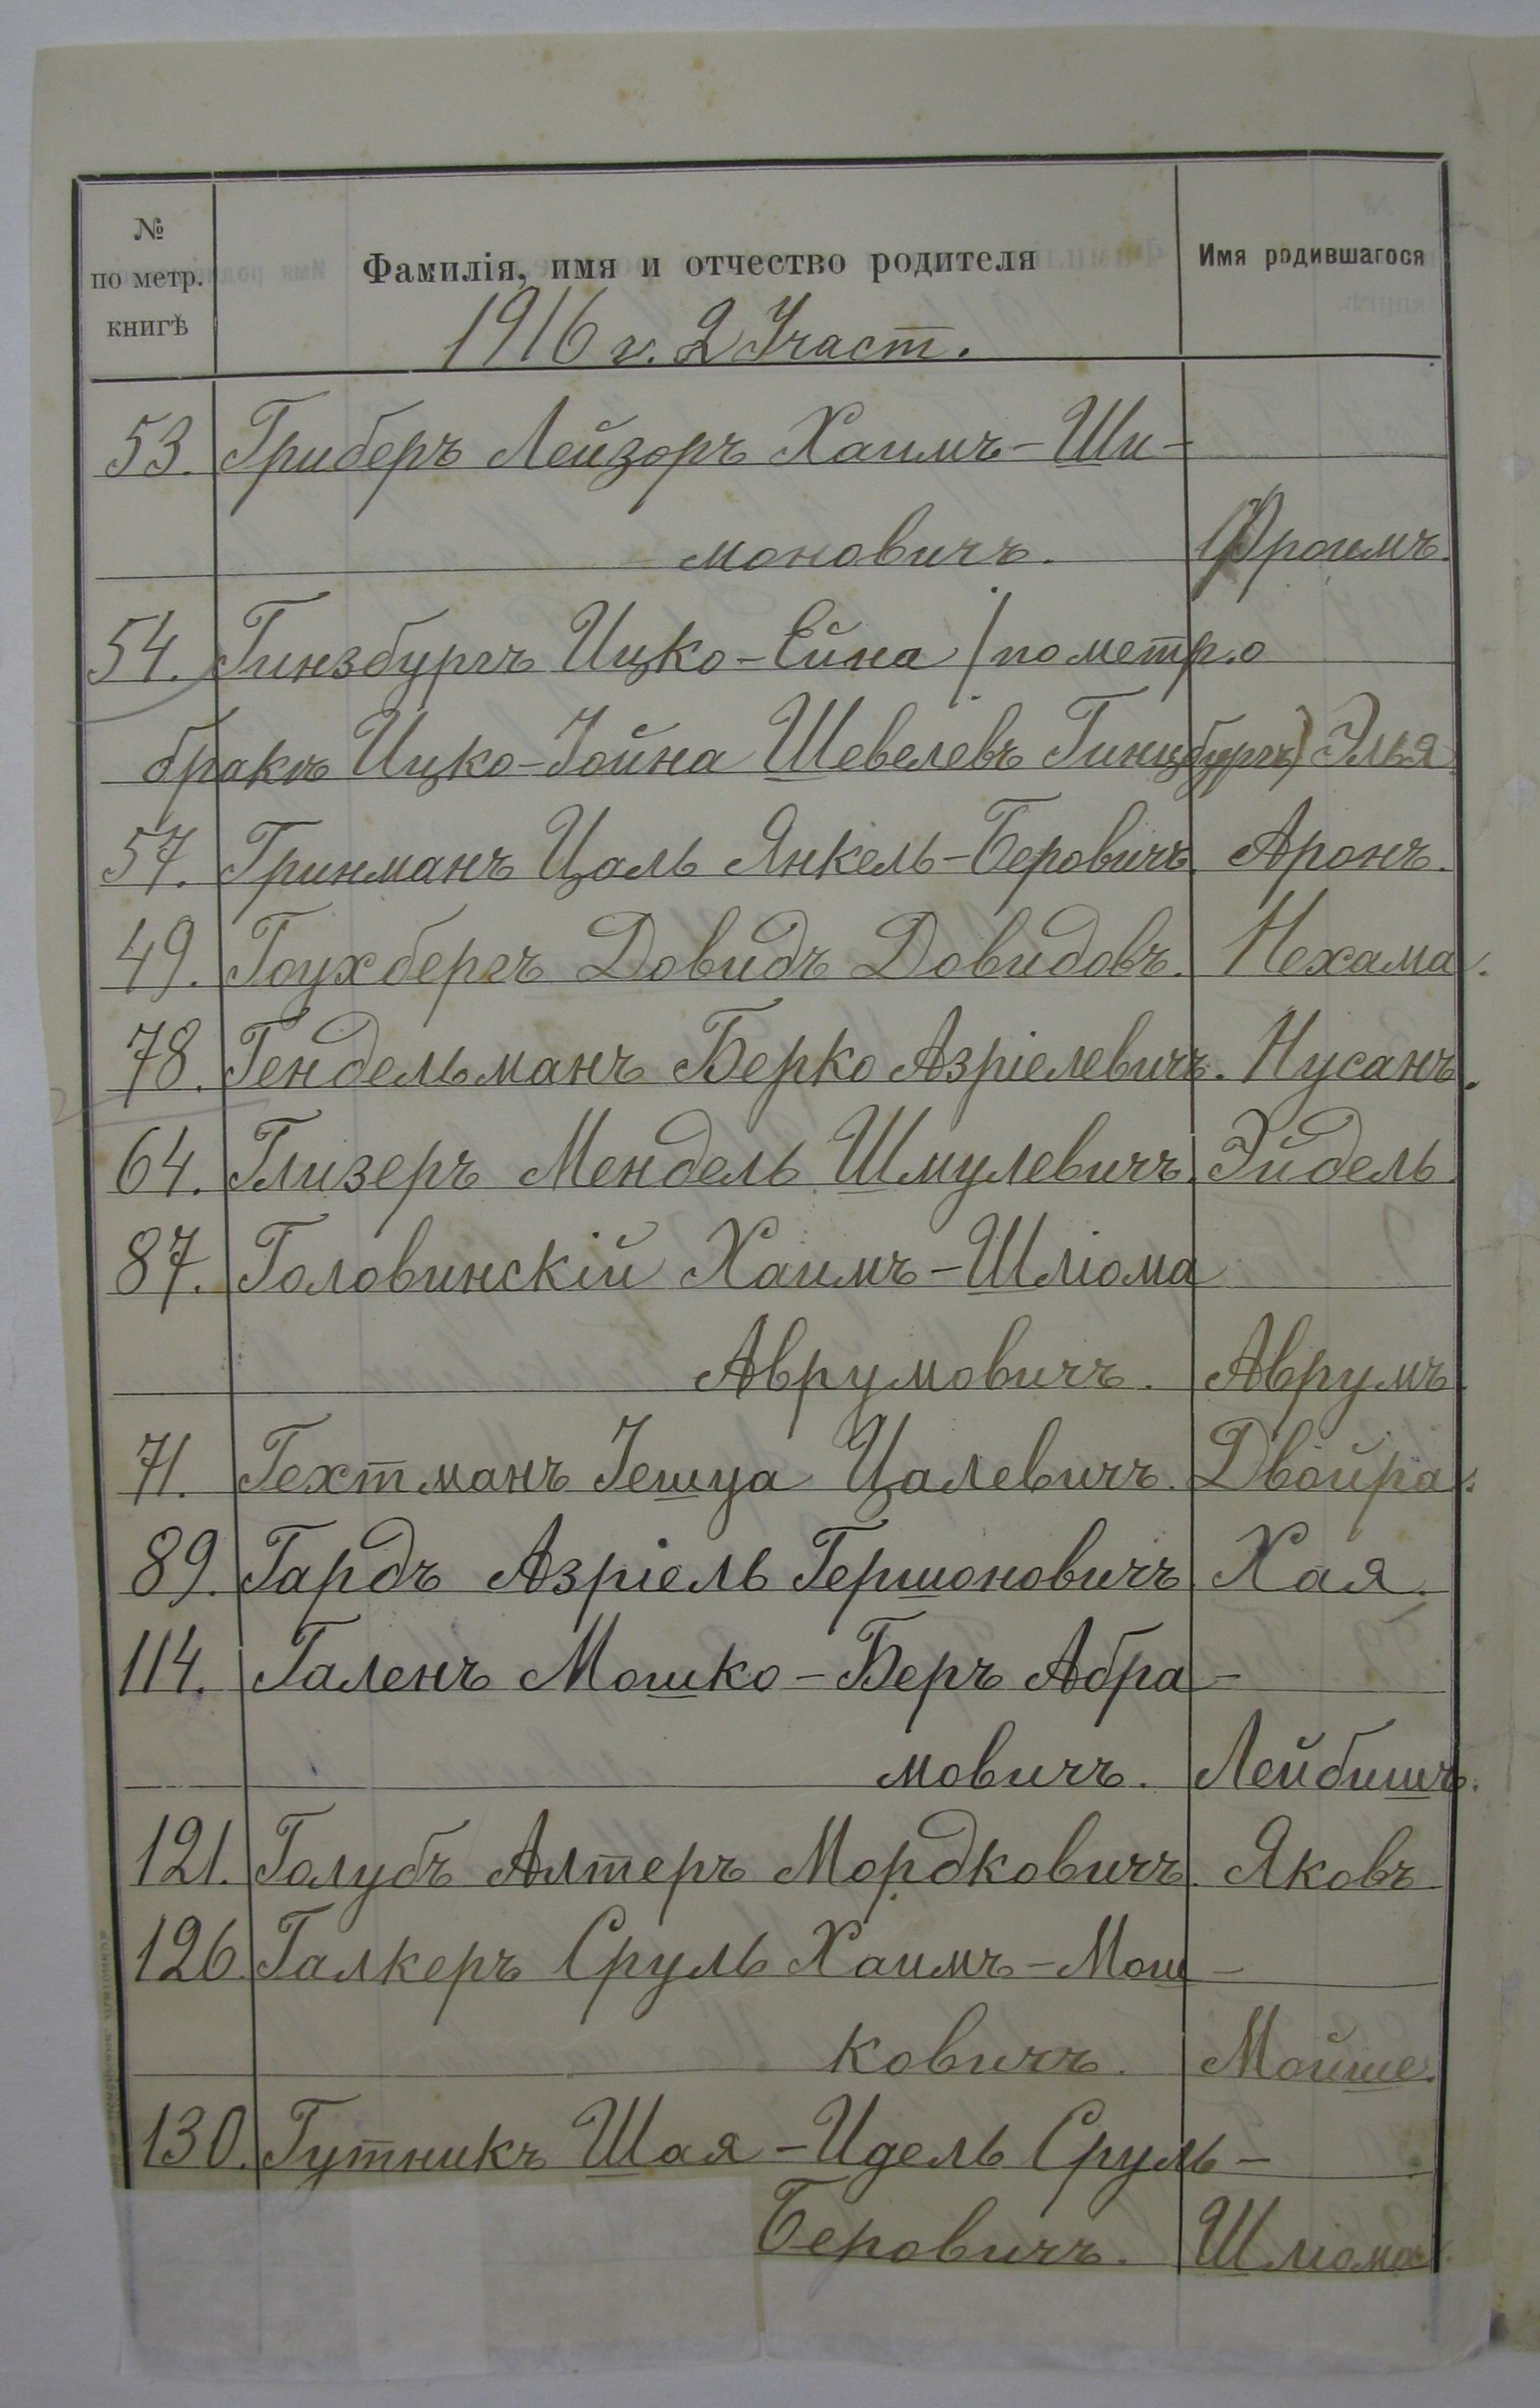 № по метр. книгѣ | Фамилія, имя и отчество родителя | Имя родившагося
1916 г. 2 Участ.
53. Гриберъ Лейзоръ Хаимъ-Ши-
моновичъ. Фроимъ.
54. Гинзбургъ Ицко-Ейна /по метр. о
бракъ Ицко-Іойна Шевелевъ Гинцбургъ) Элья
57. Гринманъ Цаль Янкель-Беровичъ. Аронъ.
49. Гоухбергъ Довидъ Довидовъ. Нехама.
78. Гендельманъ Берко Азріелевичъ. Нусанъ.
64. Глизеръ Мендель Шмулевичъ. Эйдель.
87. Головинскій Хаимъ-Шліома
Аврумовичъ. Аврумъ.
71. Гехтманъ Іешуа Цалевичъ. Двойра.
89. Гардъ Азріель Гершоновичъ. Хая.
114. Галенъ Мошко-Беръ Абра-
мовичъ. Лейбишъ.
121. Голубъ Алтеръ Мордковичъ. Яковъ
126. Галкеръ Сруль Хаимъ-Мош-
ковичъ. Мойше.
130. Гутникъ Шая-Идель Сруль-
Беровичъ. Шліома.